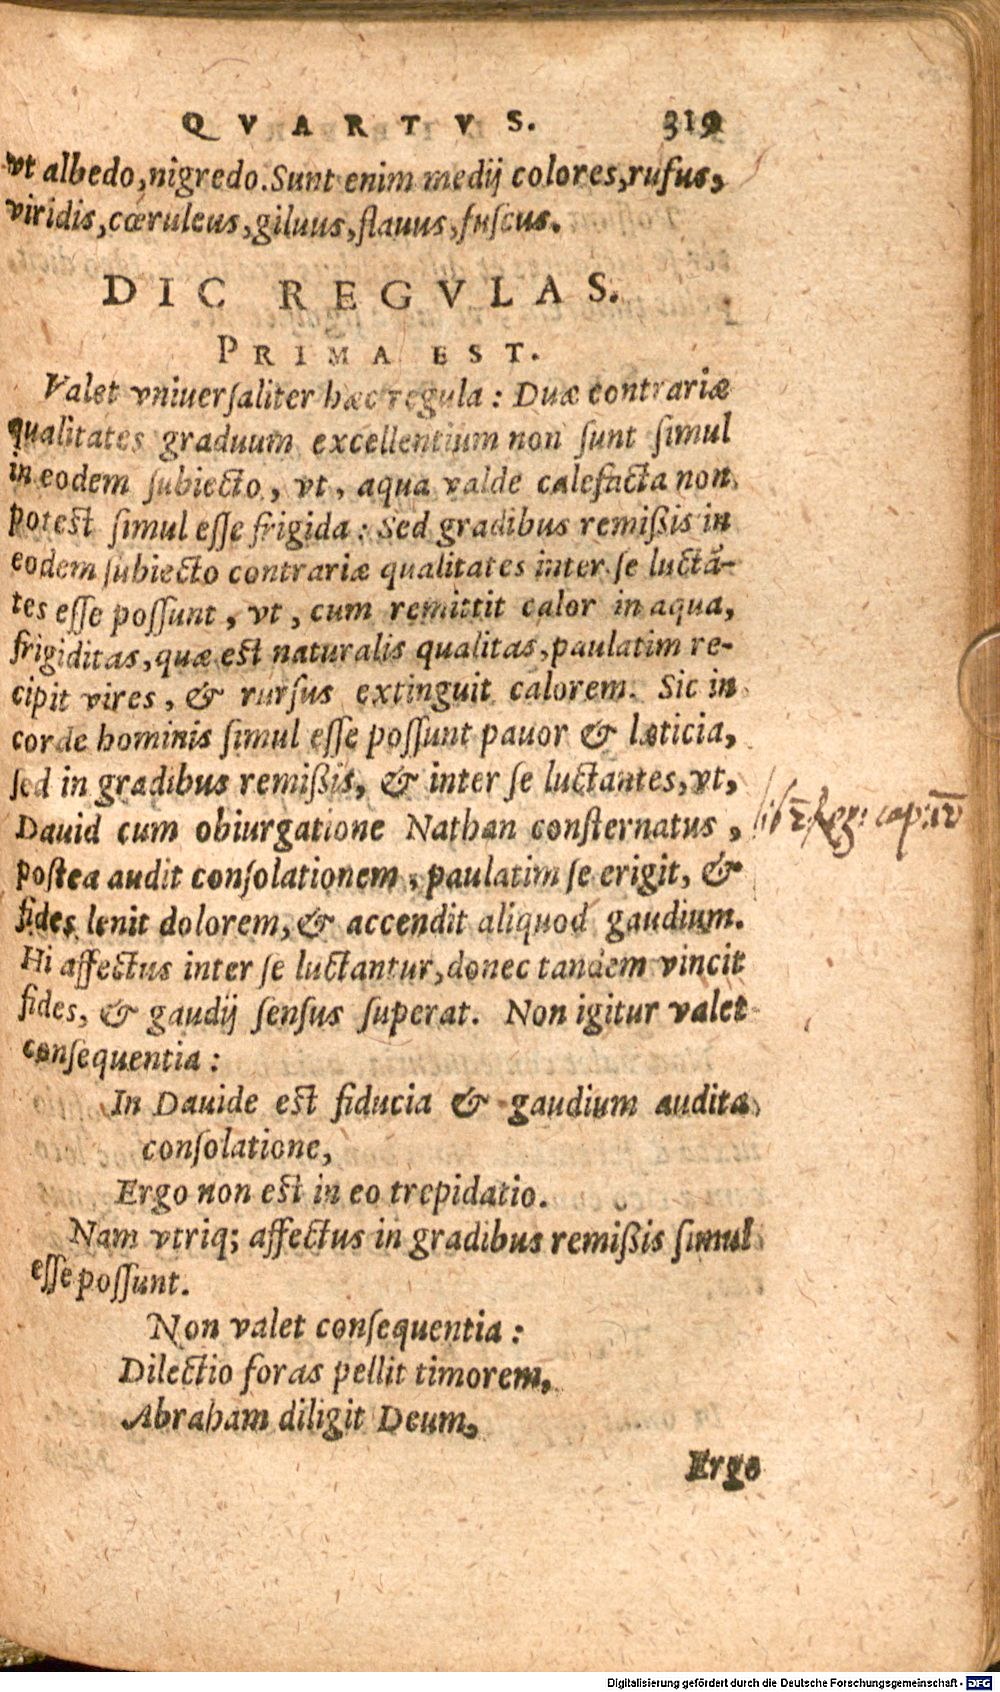 QVARTVS. 319
vt albedo, nigredo. Sunt enim medij colores, rufus,
viridis, cœruleus, giluus, flauus, fuscus.
DIC REGVLAS.
PRIMA EST.
Valet vniuerſaliter hæc regula: Duæ contrariæ
qualitates graduum excellentium non ſunt ſimul
in eodem ſubiecto, vt, aqua valde calefacta non
poteſt ſimul eſſe frigida: Sed gradibus remiſsis in
eodem ſubiecto contrariæ qualitates inter ſe luctā-
tes eſſe poſſunt, vt, cum remittit calor in aqua,
frigiditas, quæ eſt naturalis qualitas, paulatim re-
cipit vires, & rurſus extinguit calorem. Sic in
corde hominis ſimul eſſe poſſunt pauor & læticia,
ſed in gradibus remiſsis, & inter ſe luctantes, vt,
Dauid cum obiurgatione Nathan conſternatus,
poſtea audit conſolationem, paulatim ſe erigit, &
fides lenit dolorem, & accendit aliquod gaudium.
Hi affectus inter ſe luctantur, donec tandem vincit
fides, & gaudij ſenſus ſuperat. Non igitur valet
conſequentia:
In Dauide eſt fiducia & gaudium audita
conſolatione,
Ergo non eſt in eo trepidatio.
Nam vtriq; affectus in gradibus remiſsis ſimul
eſſe poſſunt.
Non valet conſequentia:
Dilectio foras pellit timorem,
Abraham diligit Deum,
Ergo
Digitalisierung gefördert durch die Deutsche Forschungsgemeinschaft - DFG